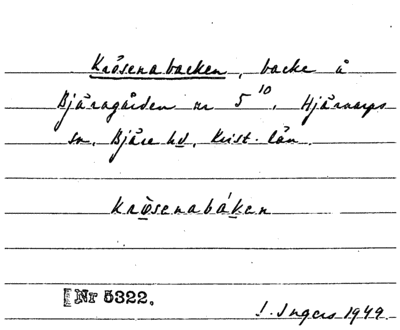 Krösenabacken, backe å
Bjäragården nr 5¹⁰, Hjärnarps
sn, Bjäre hd, Krist. län.
krösenabáken
[Nr 5322.
I. Ingers 1949.